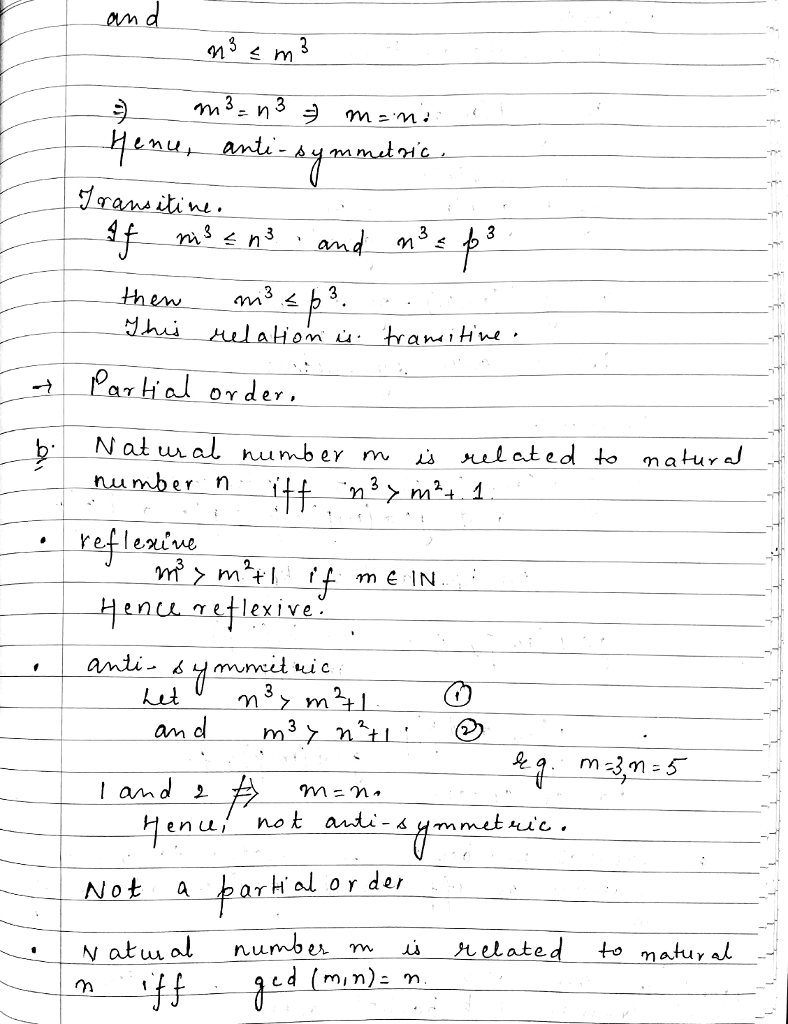 and
n³ ≤ m³
⇒ m³ = n³ ⇒ m = n.
Hence, anti-symmetric.
Transitive.
If m³ ≤ n³ and n³ ≤ p³
then m³ ≤ p³.
This relation is transitive.
→ Partial order.
b. Natural number m is related to natural
number n iff n³ > m² + 1.
• reflexive
m³ > m²+1 if m ∈ IN.
Hence reflexive.
• anti-symmetric
Let n³ > m²+1 ①
and m³ > n²+1 ②
eg. m=3, n=5
1 and 2 ⇏ m=n.
Hence, not anti-symmetric.
Not a partial order
• Natural number m is related to natural
n iff gcd (m,n) = n.